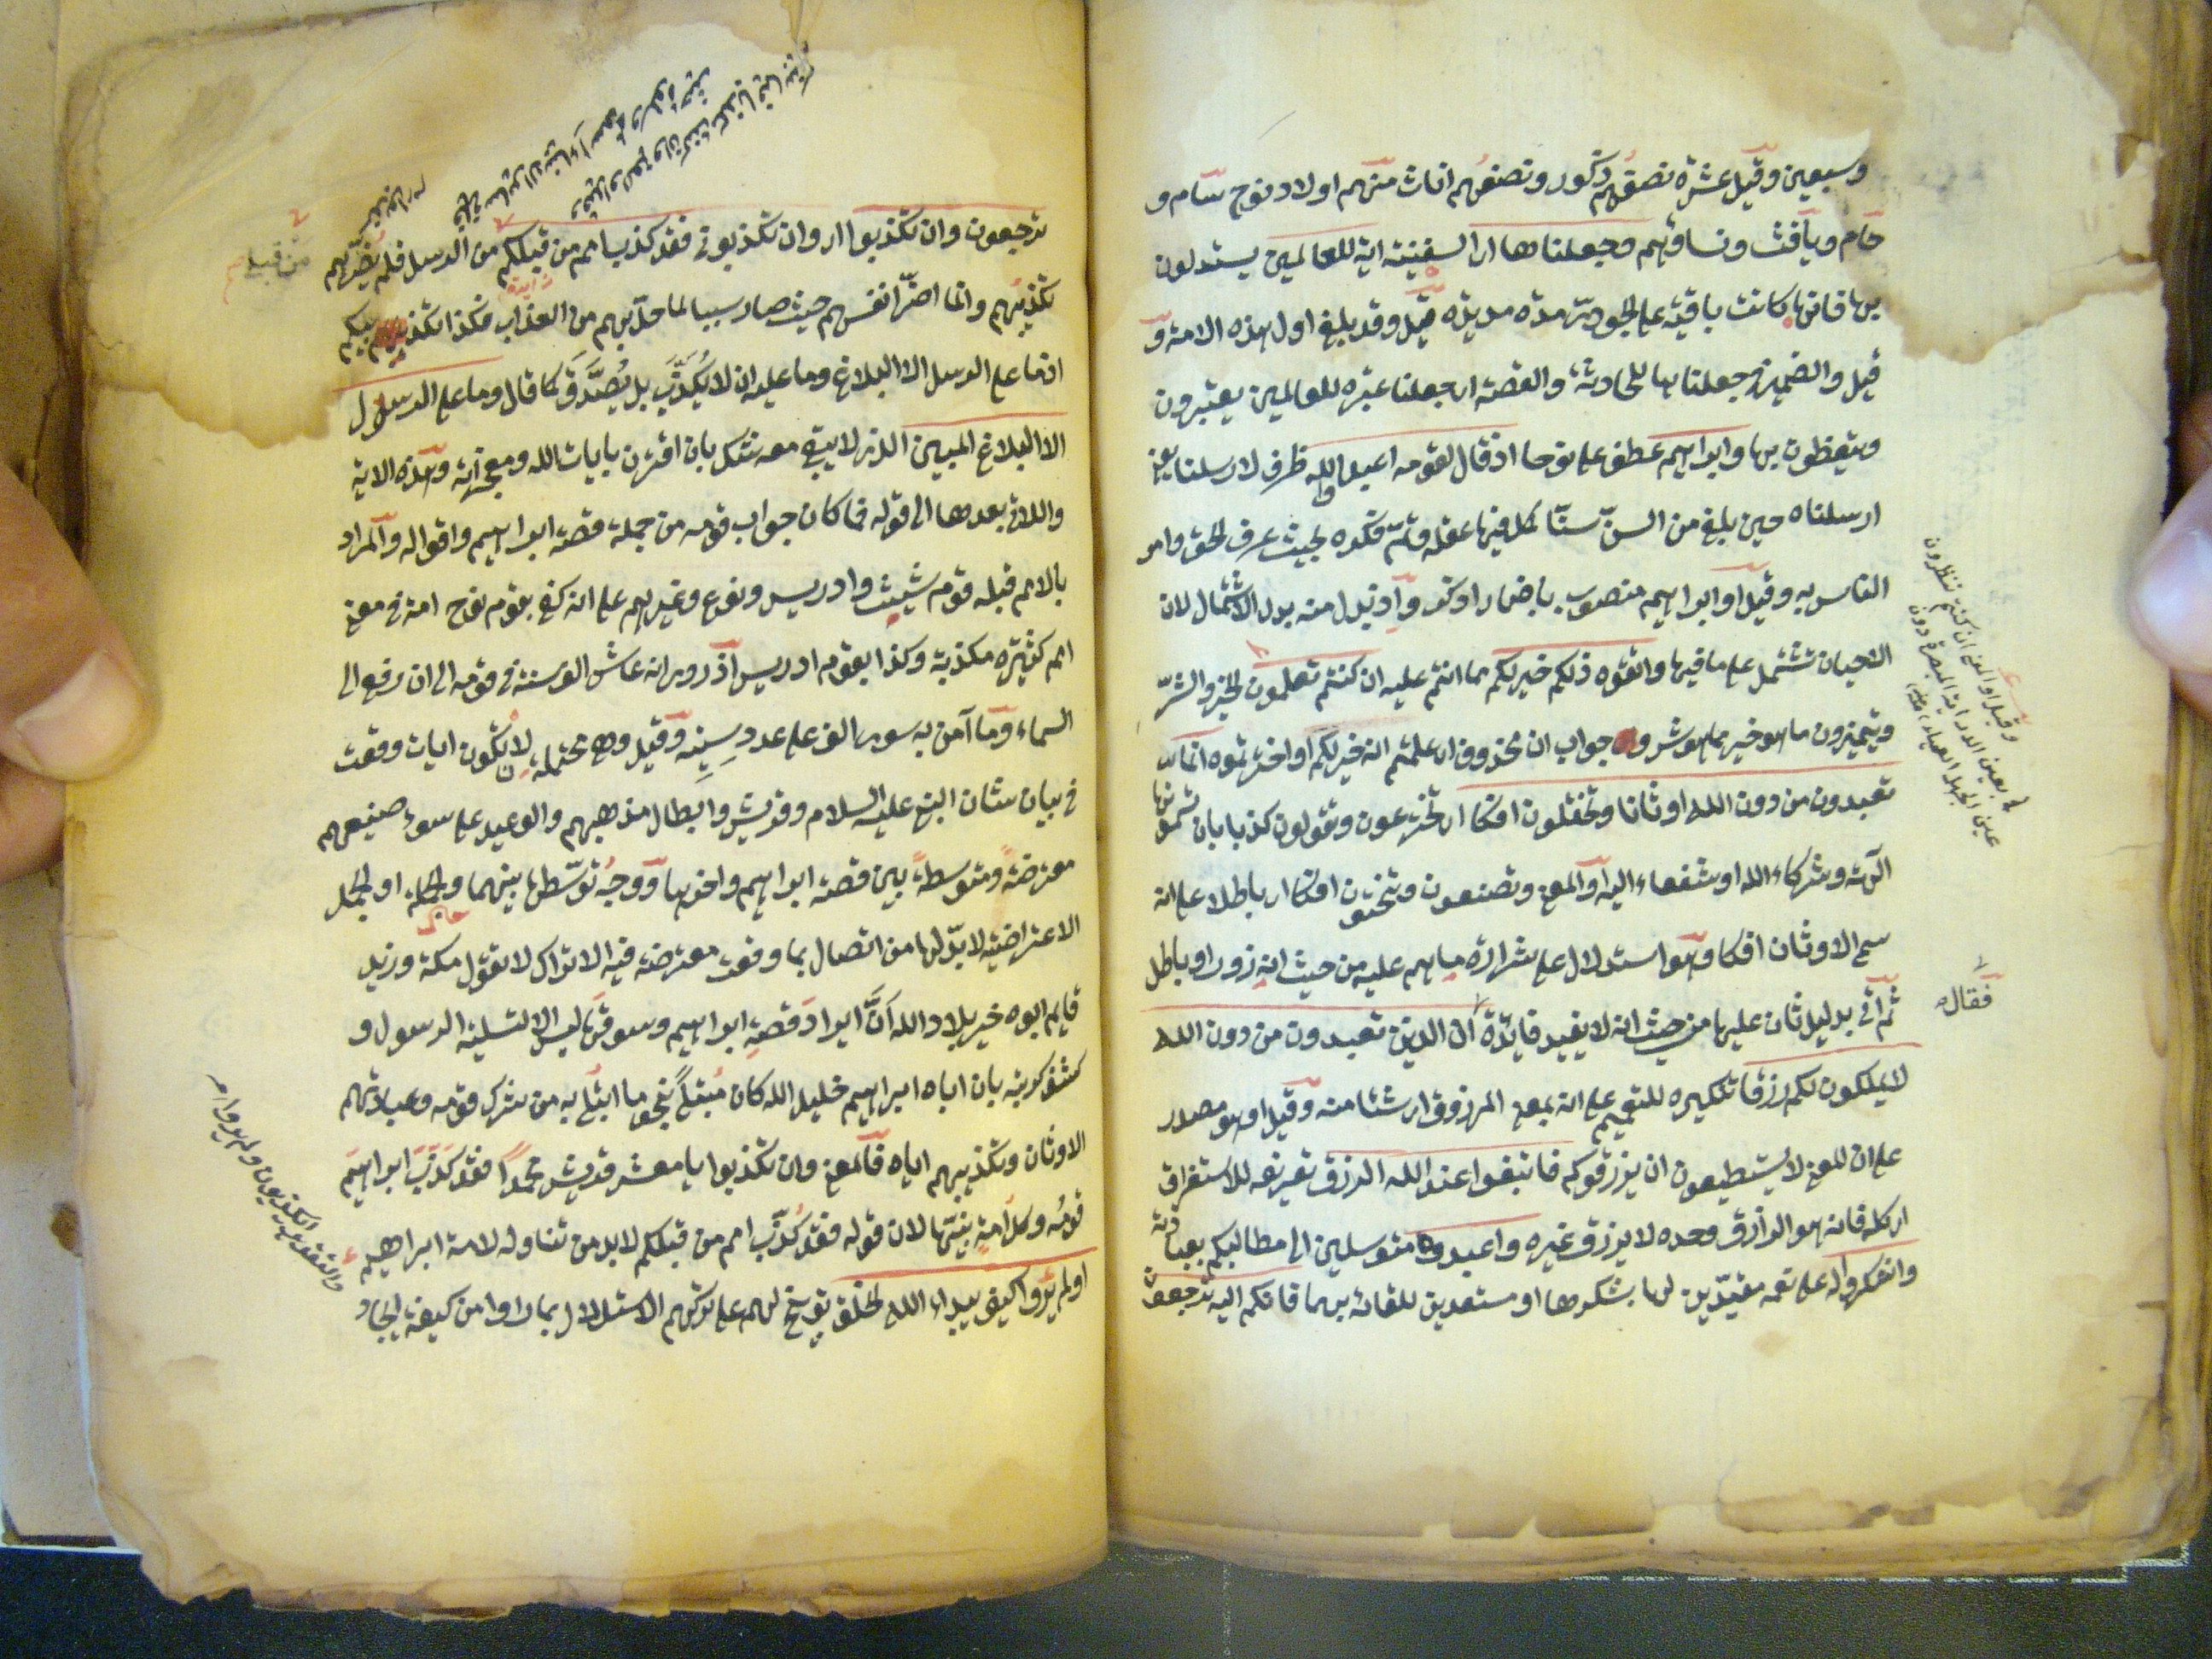 وسبعين وقيل عشرة نصفهم ذكور ونصفهم اناث منهم اولاد نوح سام و
حام ويافث ونساؤهم وجعلناها اى السفينة اية للعالمين يستدلون
بها فانها كانت باقية على الجودى مدة مديدة قيل وقد بلغ اول هذه الامة و
قيل والضمير فى جعلناها للحادثة والقصة اى جعلنا عبرة للعالمين يعتبرون
ويتعظون بها وابراهيم عطف على نوحا اذ قال لقومه اعبدوا الله ظرف لارسلنا يعنى
ارسلناه حين بلغ من السن سنا كمل فيها عقله وتم فكره بحيث عرف الحق وامر
الناس به وقيل او ابراهيم منصوب باضمار اذكر واذ بدل منه بدل الاشتمال لان
الاحيان تشتمل على ما فيها واتقوه ذلكم خير لكم مما انتم عليه ان كنتم تعلمون الخير والشر
وتميزون ما هو خير مما هو شر وجواب ان محذوف اى علمتم انه خير لكم او اخترتموه انما
تعبدون من دون الله اوثانا وتخلقون افكا اى تخترعون وتقولون كذبا بان تسمونها
آلهة وشركاء الله او شفعاء اليه او المعنى وتصنعون وتنحتون افكا اى باطلا على انه
سمى الاوثان افكا وهو استدلال على شرارة ما هم عليه من حيث انه زور او باطل
ثم اتى بدليل ثان عليها من حيث انه لا يفيد فايدة ان الذين تعبدون من دون الله
لا يملكون لكم رزقا تنكيره للتعميم على انه بمعنى المرزوق اى شئا منه وقيل او هو مصدر
على ان المعنى لا يستطيعون ان يرزقوكم فابتغوا عند الله الرزق تعريفه للاستغراق
اى كله فانه هو الرازق وحده لا يرزق غيره واعبدوه متوسلين الى مطالبكم بعبادته
واشكروا له على نعمه مقيدين لها بشكرها او مستعدين للقائه بهما فانكم اليه ترجعون
وقيل او المعنى ان كنتم تنظرون
بعين الدراية المبصرة دون
عين الجهل العمياء
فقال
ترجعون وان تكذبوا اى وان تكذبونى فقد كذب امم من قبلكم من الرسل فلم يضرهم
تكذيبهم وانما اضر انفسهم حيث صار سببا لما حل بهم من العذاب فكذا تكذيبكم
انما على الرسل الا البلاغ وما عليه ان لا يُكذَّب بل يُصدَّق كما قال وما على الرسول
الا البلاغ المبين الذى لا يبقى معه شك بان اقترن بايات الله ومعجزاته وهذه الاية
واللاتى بعدها الى قوله فما كان جواب قومه من جملة قصة ابراهيم واقواله والمراد
بالامم قبله قوم شيث وادريس ونوح وغيرهم على انه كفى بقوم نوح امة فى معنى
امم كثيرة مكذبة وكذا بقوم ادريس اذ روى انه عاش الف سنة فى قومه الى ان رفع الى
السماء وما آمن به سوى الف على عدد سنيه وقيل وهى تحتمل لان تكون ايات وقعت
فى بيان شان النبى عليه السلام وقريش وابطال مذهبهم والوعيد على سوء صنيعهم
معترضة ومتوسطة بين قصة ابراهيم واخرها ووجه توسطها بينهما والحال او الجمل
الاعتراضية لا بد لها من اتصال بما وقعت معترضة فيه الا تراك لا تقول مكة وزيد
قايم ابوه خير بلاد الله انّ ايراد قصة ابراهيم وسوقها ليس الا لتسلية الرسول و
كشف كربه بان اباه ابراهيم خليل الله كان مبتلى بنحو ما ابتلى به من شرك قومه وعبادتهم
الاوثان وتكذيبهم اياه فالمعنى وان تكذبوا يا معشر قريش محمدا فقد كذب ابراهيم
قومه وكل امة نبيها لان قوله فقد كذب امم من قبلكم لا بد من تناوله لامة ابراهيم
اولم يروا كيف يبدئ الله الخلق توبيخ لهم على تركهم الاستدلال بما راوا من كيفية ايجاد
من قبلى